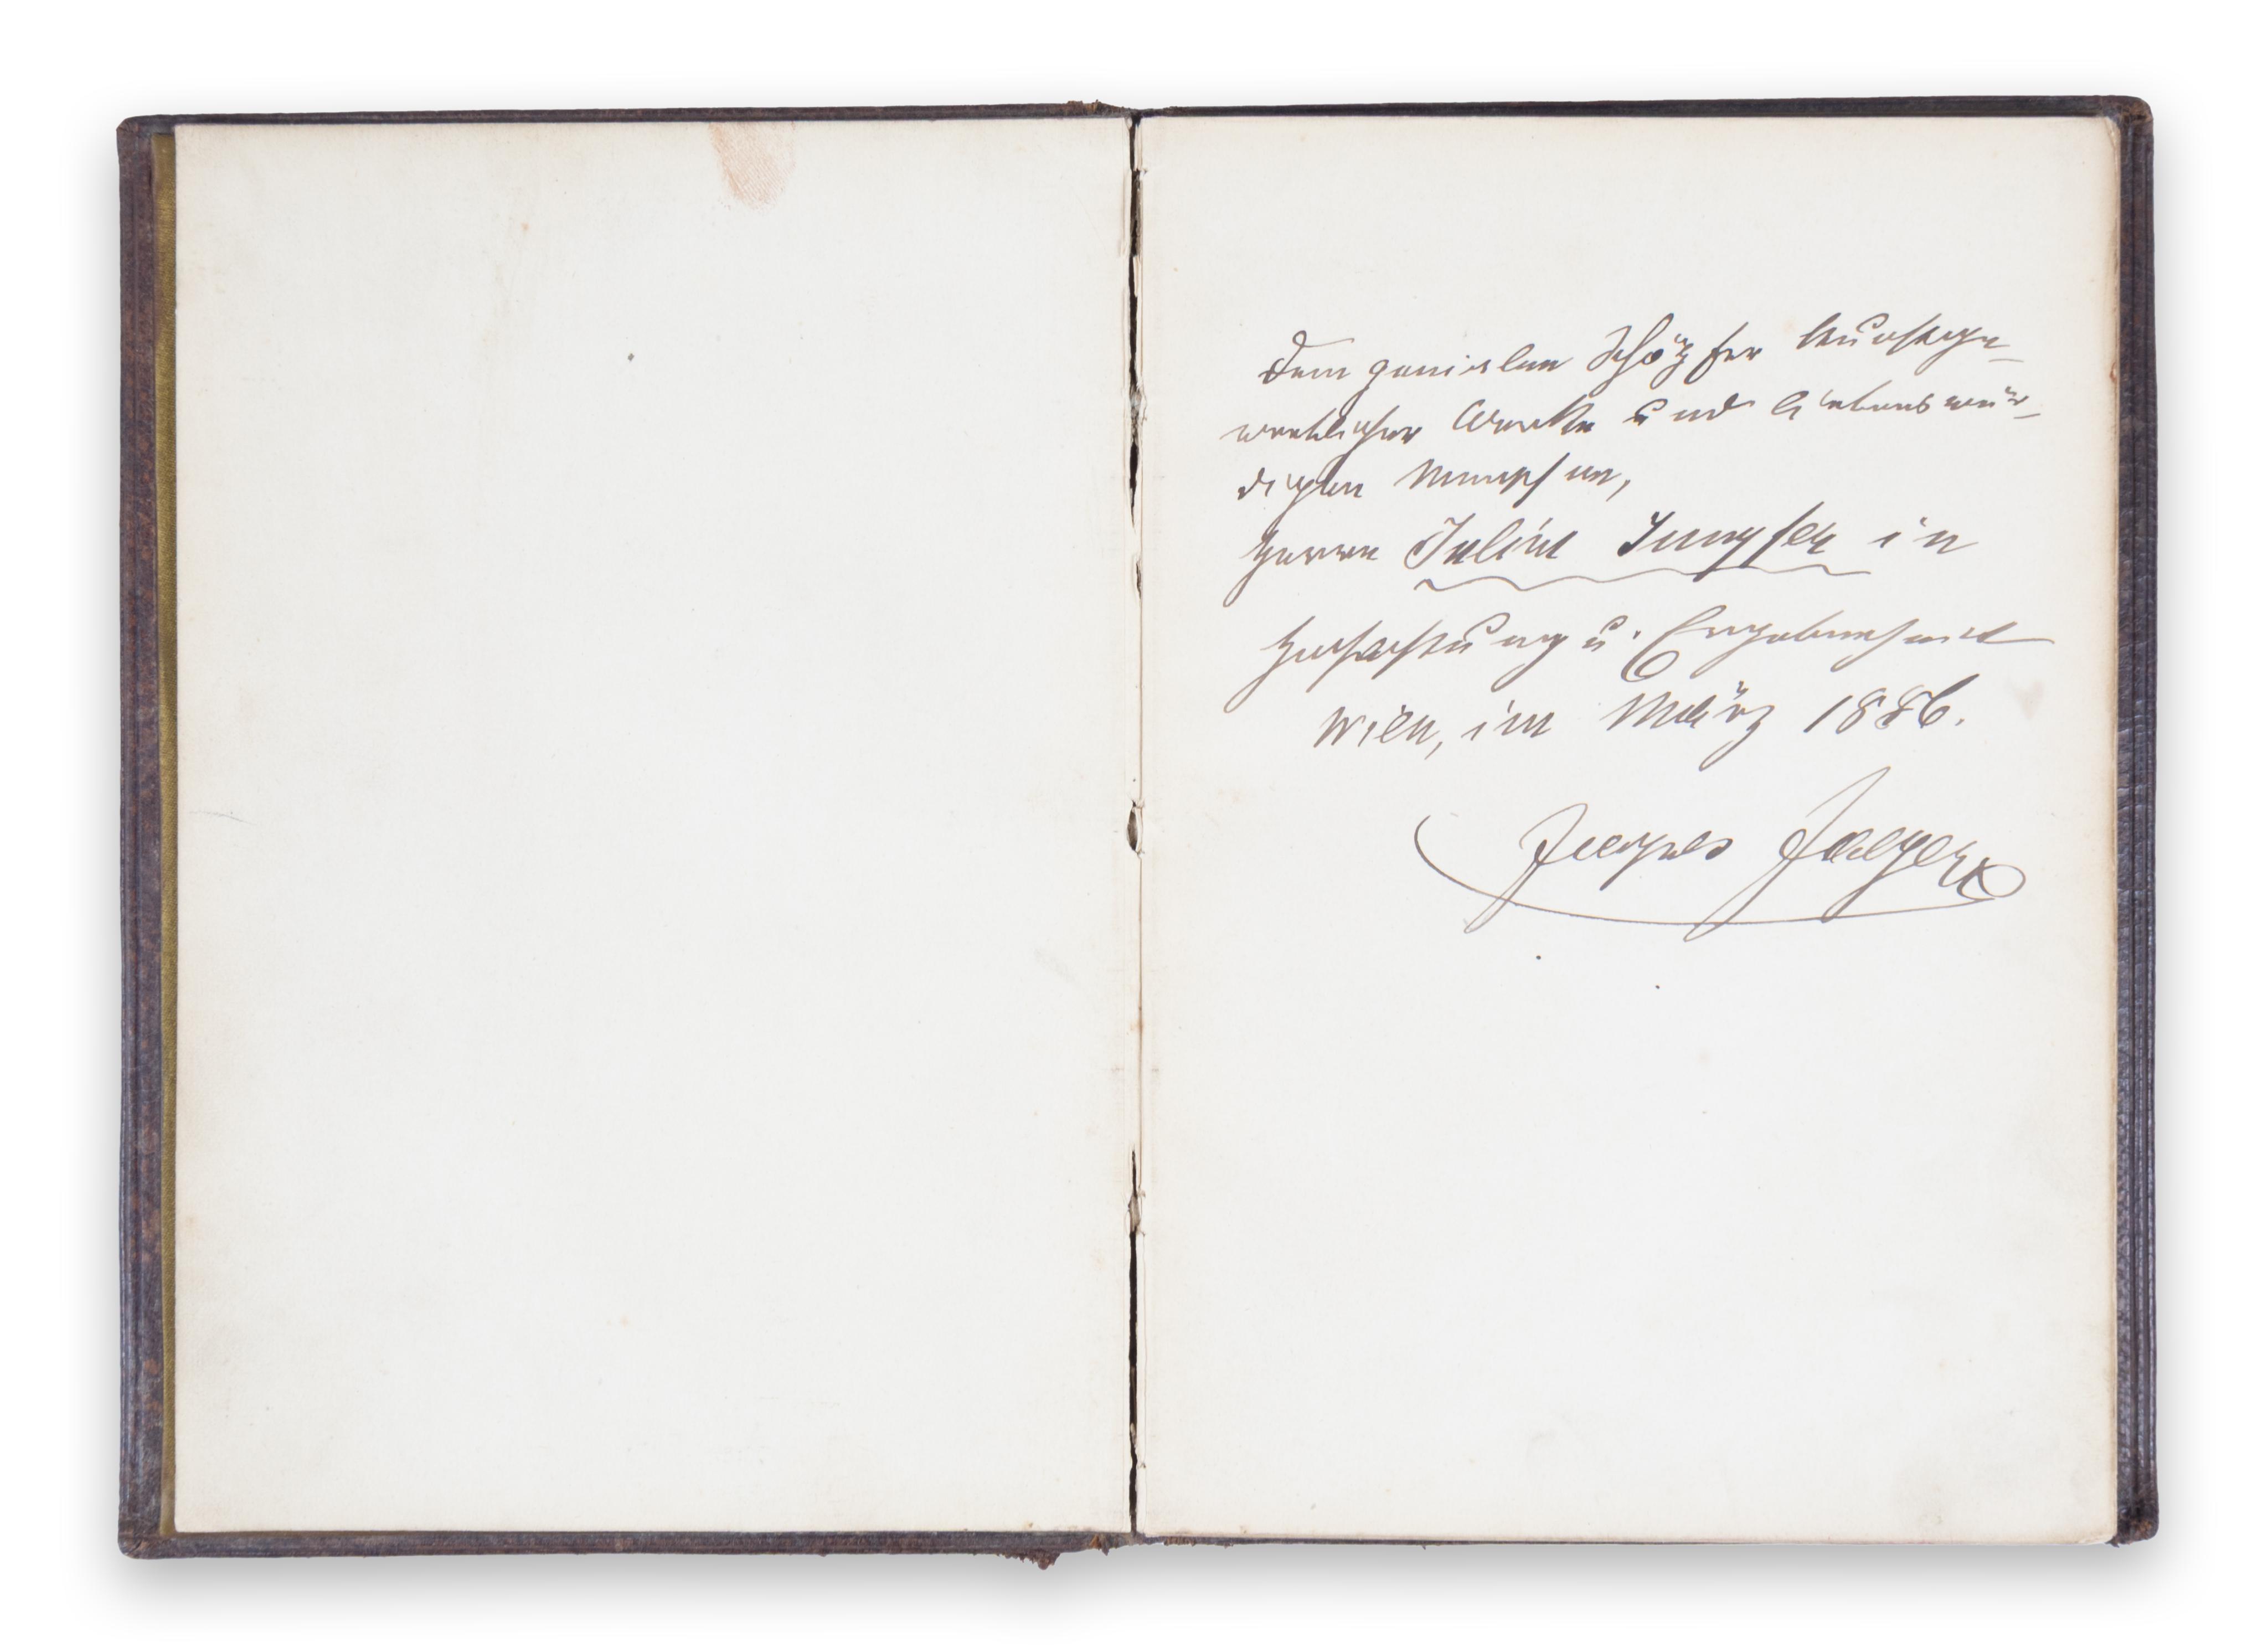 Dem genialen Schöpfer kunstge-
werblicher Werke und liebenswür-
digen Menschen,
Herrn Julius Jungfer in
Hochachtung u. Ergebenheit
Wien, im März 1886.
Jacques Jaeger